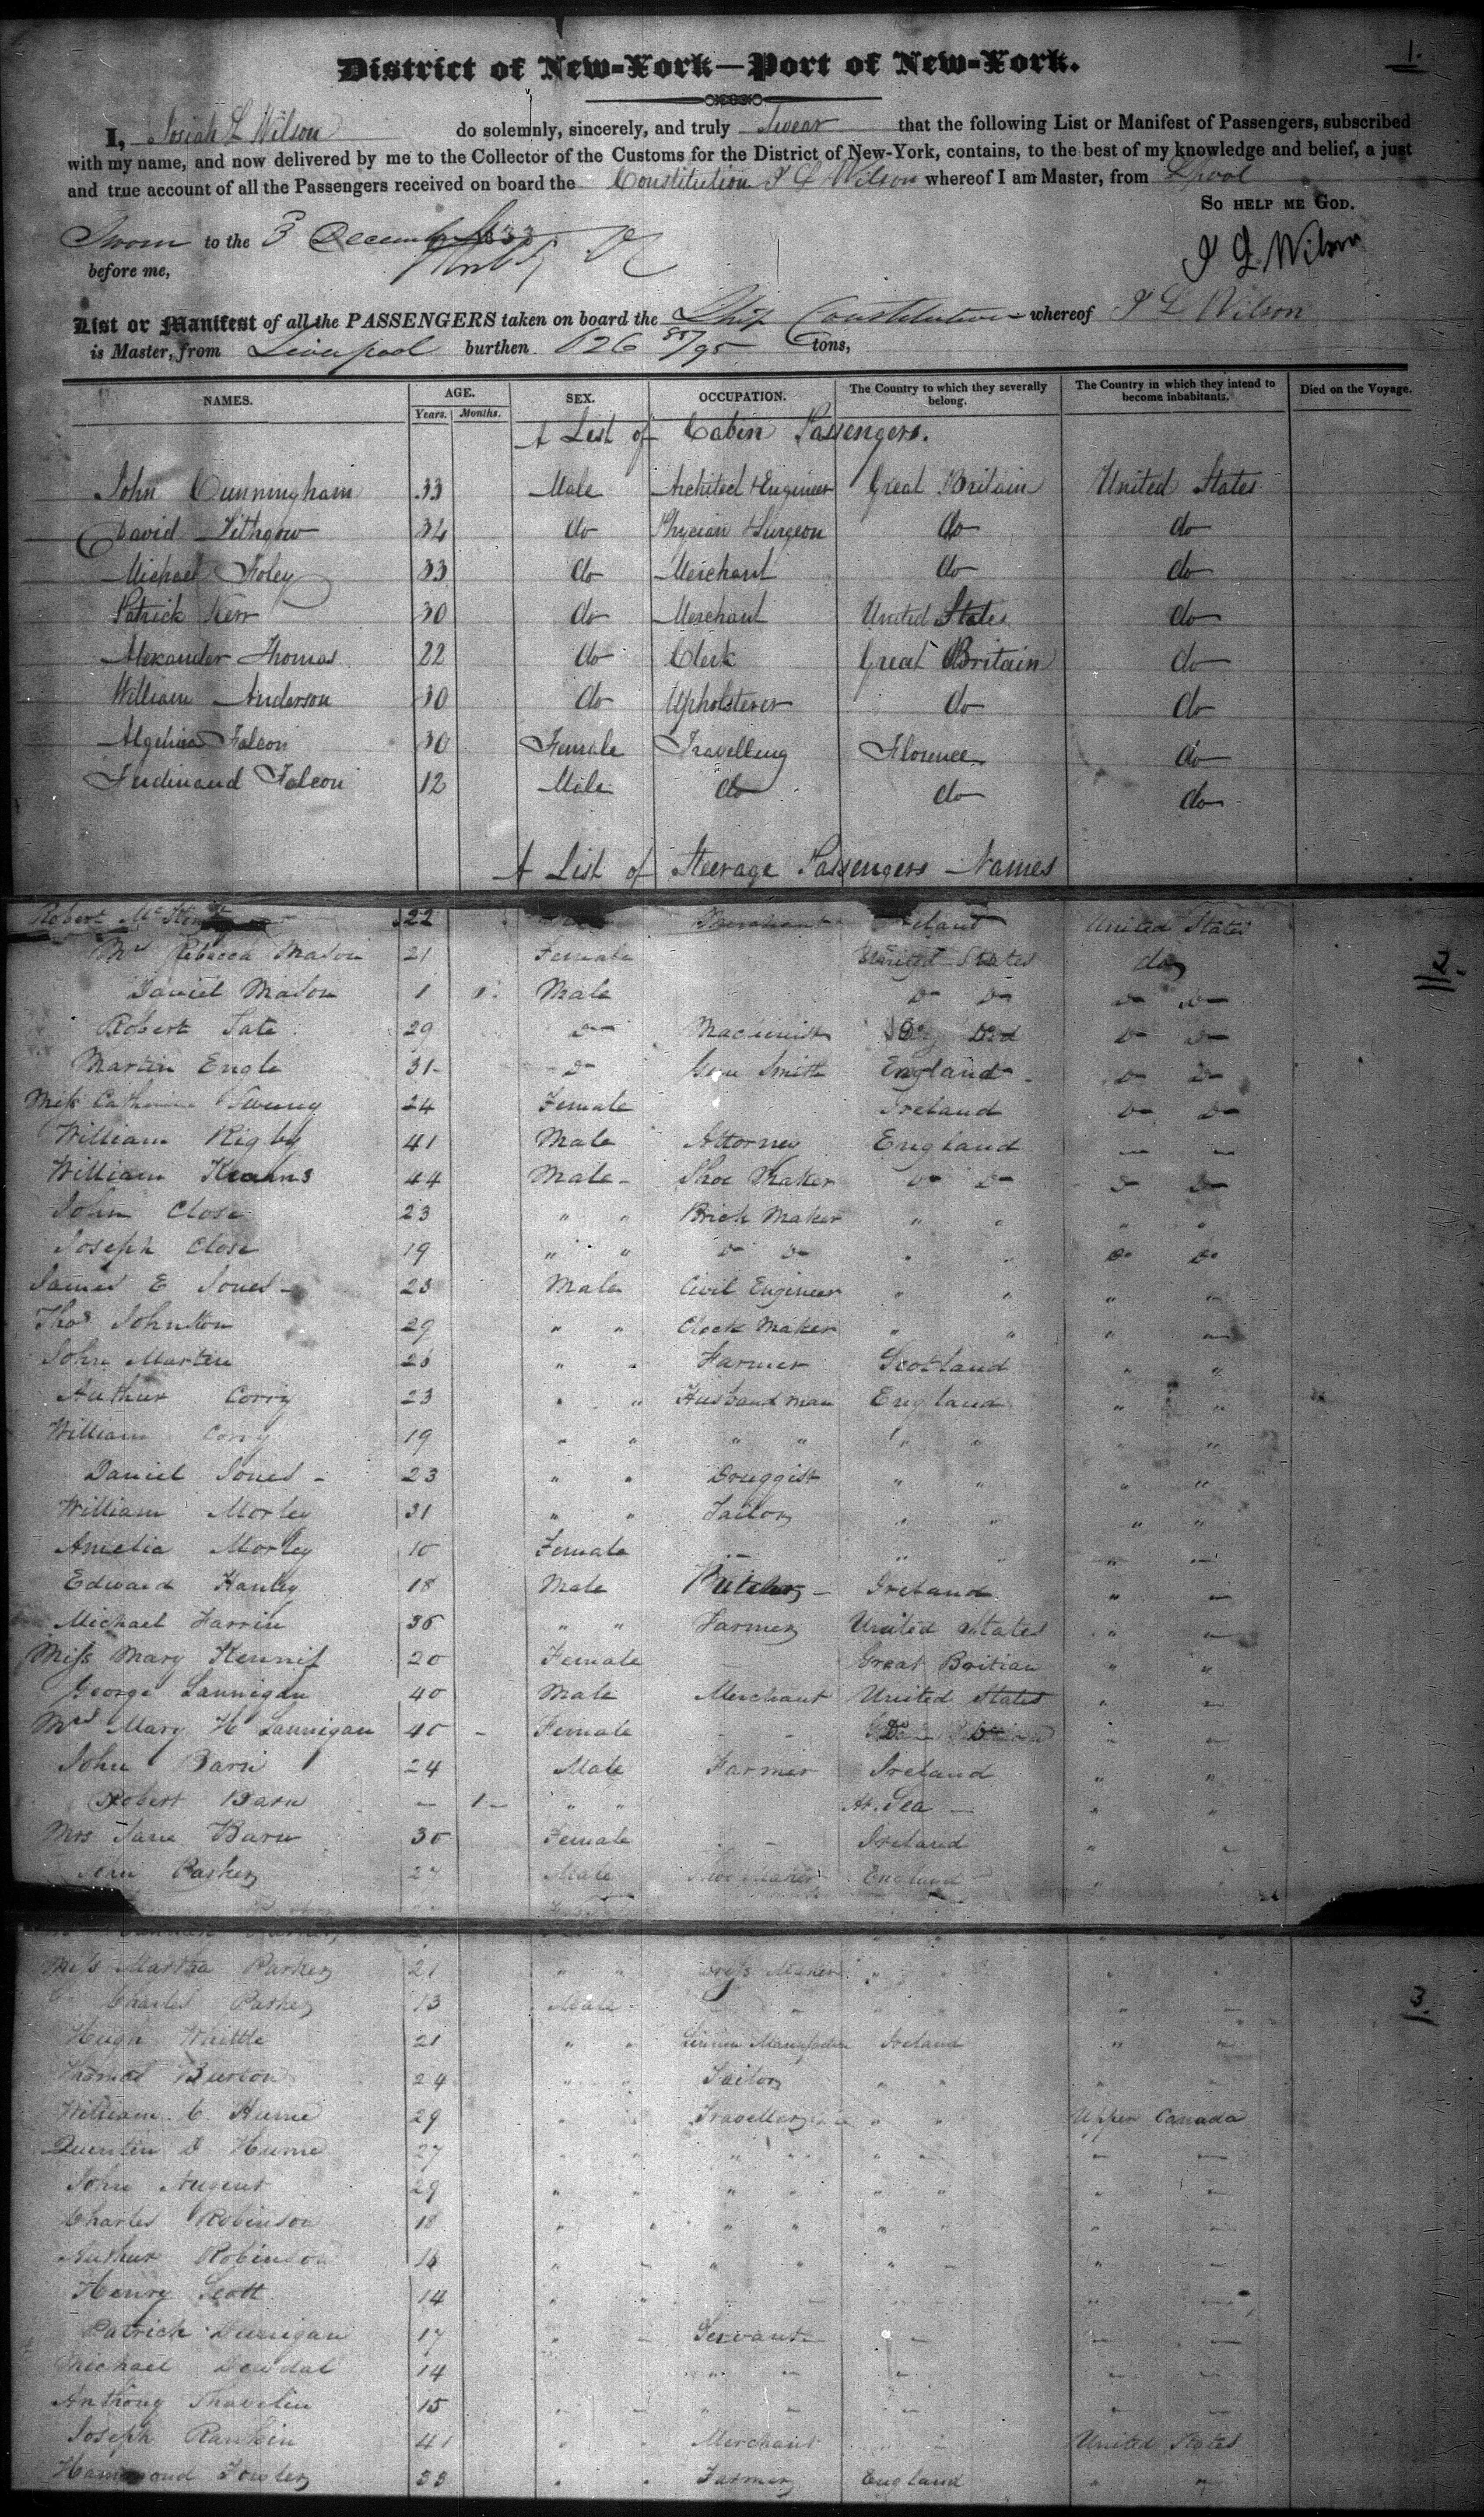 1.
District of New-York—Port of New-York.
I, Josiah L Wilson do solemnly, sincerely, and truly Swear that the following List or Manifest of Passengers, subscribed
with my name, and now delivered by me to the Collector of the Customs for the District of New-York, contains, to the best of my knowledge and belief, a just
and true account of all the Passengers received on board the Constitution J L Wilson whereof I am Master, from Lpool
So help me God.
Sworn to the 3 December 1833
before me,
J L Wilson
List or Manifest of all the PASSENGERS taken on board the Ship Constitution whereof J L Wilson
is Master, from Liverpool burthen 626 88/95 tons,
NAMES. AGE. Years. Months. SEX. OCCUPATION. The Country to which they severally belong. The Country in which they intend to become inhabitants. Died on the Voyage.
A List of Cabin Passengers.
John Cunningham 33 Male Architect & Engineer Great Britain United States
David Lithgow 34 do Phycian & Surgeon do do
Michael Foley 33 do Merchant do do
Patrick Kerr 30 do Merchant United States do
Alexander Thomas 22 do Clerk Great Britain do
William Anderson 30 do Upholsterer do do
Falcon 30 Female Travelling Florence do
Ferdinand Falcon 12 Male do do do
A List of Steerage Passengers Names
Robert 22 Merchant Ireland United States
2.
Mrs Rebecca Mason 21 Female United States do
Daniel Mason 1 Male Do Do Do Do
Robert Tate 29 Do Machinist Do Do
Martin Engle 31 Do Gun Smith England Do Do
Miss Catherine 24 Female Ireland Do Do
William Rigby 41 Male Attorney England
William Kearns 44 Male Shoe Maker Do Do Do Do
John Close 23 " " Brick Maker " " " "
Joseph Close 19 " " Do Do " " Do Do
James E Jones 23 Male Civil Engineer " " " "
Thos Johnston 29 " " Clock Maker " " "
John Martin 26 " " Farmer Scotland " "
Arthur Corry 23 " " Husbandman England " "
William Corry 19 " " " " " " " "
Daniel Jones 23 " " Druggist " " " "
William Morley 31 " " Tailor " " " "
Amelia Morley 10 Female " " "
Edward Hanley 18 Male Butcher Ireland "
Michael Farrin 36 " " Farmer United States "
Miss Mary Kennif 20 Female Great Britian " "
George Lannigan 40 Male Merchant United States "
Mrs Mary H Lannigan 40 Female Do Do "
John Barn 24 Male Farmer Ireland " "
Robert Barn 1 " " At Sea " "
Mrs Jane Barn 30 Female Ireland "
John Parker 27 Male Shoe Maker England "
Miss Martha Parker 21 " " Dress Maker " "
3.
Charles Parker 13 Male
Hugh Whittle 21 " " Ireland " "
Thomas Burton 24 " " Tailor " " "
William C. Hume 29 " Traveller " " Upper Canada
Quentin D Hume 27 " " " " " "
John Nugent 29 " " " " " " "
Charles Robinson 18 " " " " " " "
Arthur Robinson 16 " " " " "
Henry Scott 14 " "
Patrick Dunigan 17 " Servant
Michael Dowdal 14 " "
Anthony 15
Joseph Rankin 41 " Merchant United States
Hammond Fowler 33 " " Farmer England " "